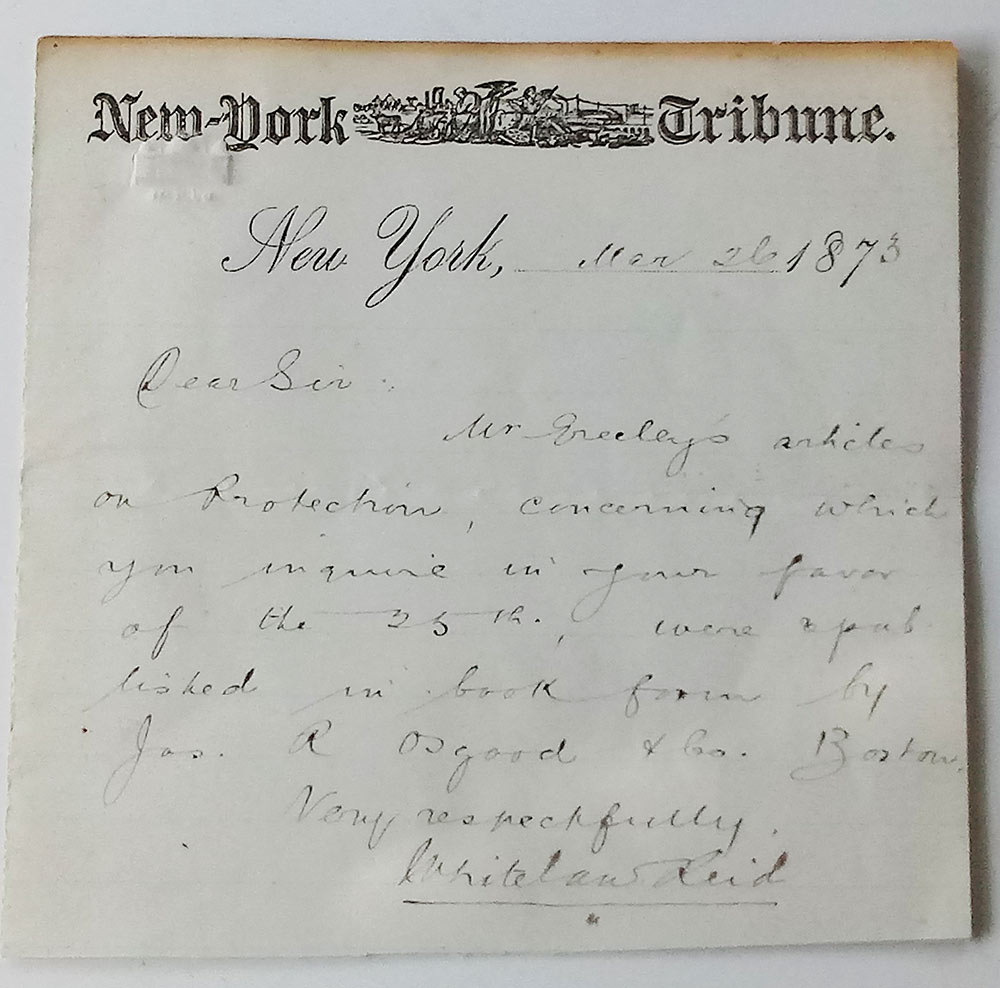 New-York Tribune.
New York, Mar 26 1873
Dear Sir:
Mr Greeley's articles
on Protection, concerning which
you inquire in your favor
of the 25th., were repub
lished in book form by
Jas. R Osgood & Co. Boston.
Very respectfully,
Whitelaw Reid